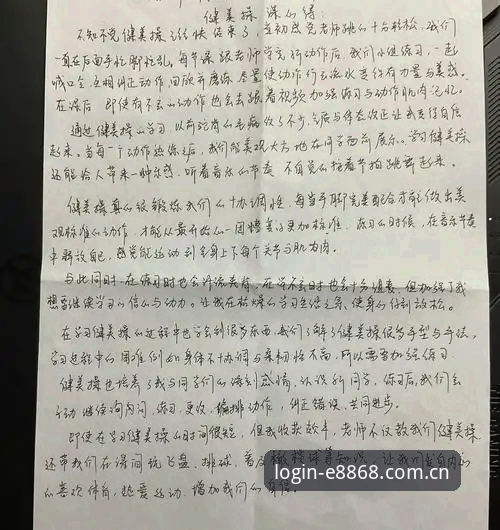 健美操 课心得:
不知不觉健美操已经快结束了,当初感觉老师跳的十分轻松,我们
一直在后面手忙脚忙乱。每节课跟老师学完动作后,我们小组练习,一起
喊口令互相纠正动作回顾并磨练,尽量使动作行云流水变得有力量与美感。
在课后 即使有不会的动作也会去跟着视频加强练习与动作肌肉记忆。
通过健美操的学习,以前驼背的毛病改了不少,气质与体态改正让我变得自信
起来。当每一个动作熟练之后,我们能美观大方地在同学面前展示。学习健美操
还能给人带来一种乐感,听着音乐的节奏 不自觉的按着节拍跳动起来。
健美操真的很锻炼我们的协调性,每当手脚完美配合才能做出美
观标准的动作,才能从最开始的一团糟变得更加标准。练习的时候,在音乐节奏
中释放自己,感觉能运动到全身上下每个关节与肌肉。
与此同时,在练习时也会汗流浃背,在学不会时也会十分沮丧,但加强了我
想要继续学习的信心与动力。让我在枯燥的学习生活之余,使身心得到放松。
在学习健美操的过程中也学会到很多东西,我们了解了健美操很多手型与手法,
学习过程中的困难例如身体不协调与柔韧性不高,所以需要加强练习
健美操也培养了我与同学们的深刻感情,认识新同学,练习后,我们会
主动继续询问,练习,更改,编排动作,纠正错误,共同进步。
即使在学习健美操的时间很短,但我收获颇丰,老师不仅教我们健美操
还带我们在课间玩飞盘、排球,普及橄榄球等知识,让我们发自内心
的喜欢体育,热爱运动,增加我们的身体
login-e8868.com.cn